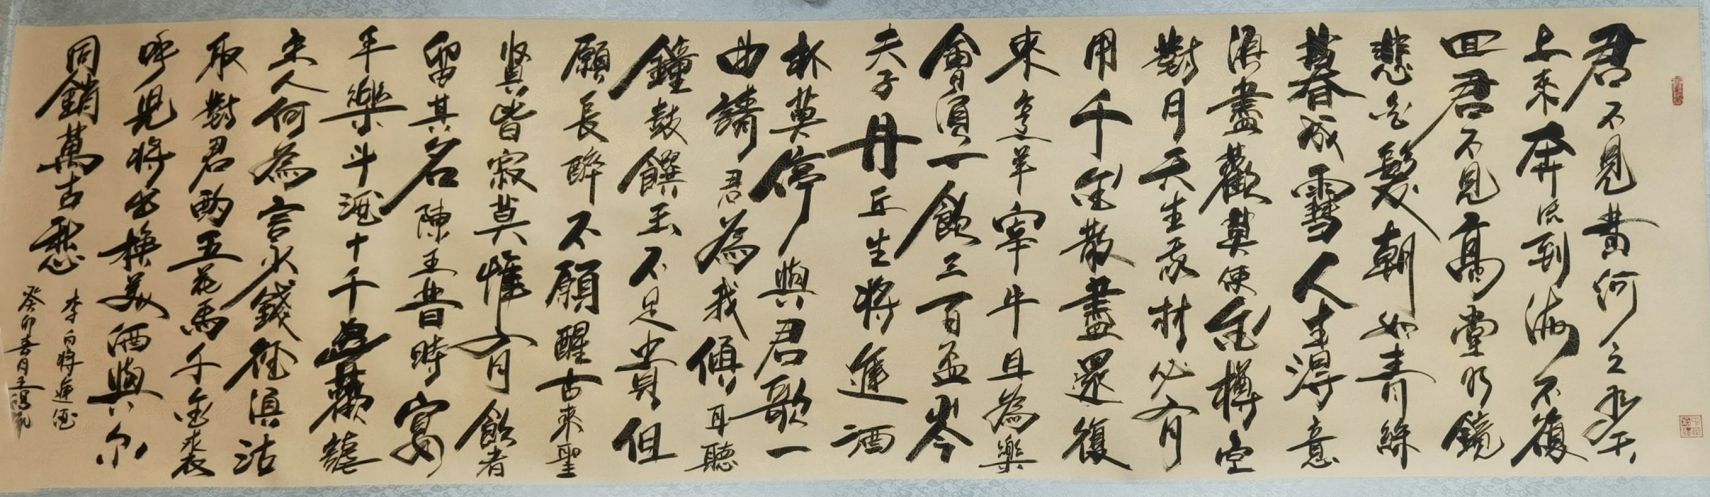 君不見黃河之水天
上來奔流到海不復
回君不見高堂明鏡
悲白髮朝如青絲
暮成雪人生得意
須盡歡莫使金樽空
對月天生我材必有
用千金散盡還復
來烹羊宰牛且為樂
會須一飲三百盃岑
夫子丹丘生將進酒
杯莫停與君歌一
曲請君為我傾耳聽
鐘鼓饌玉不足貴但
願長醉不願醒古來聖
賢皆寂莫惟有飲者
留其名陳王昔時宴
平樂斗酒十千恣歡謔
主人何為言少錢徑須沽
取對君酌五花馬千金裘
呼兒將出換美酒與爾
同銷萬古愁
李白將進酒
癸卯春月